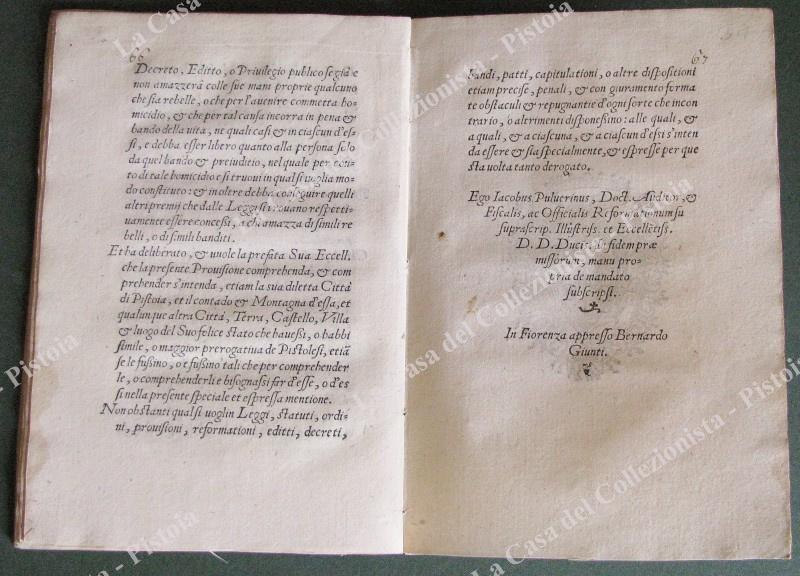 66
Decreto, Editto, o Priuilegio publico se già e
non amazzerà colle sue mani proprie qualcuno
che sia rebelle, o che per l'auenire commetta ho-
micidio, & che per tal causa incorra in pena &
bando della vita, ne quali casi & in ciascun d'es-
si, e debba esser libero quanto alla persona solo
da quel bando & preiuditio, nel quale per conto
di tale homicidio e si truoui in qual si uoglia mo-
do constituto: & inoltre debba conseguire quelli
altri premij che dalle Leggi si truouano respetti-
uamente essere concessi, a chi amazza di simili re
belli, o di simili banditi.
Et ha deliberato, & uuole la prefata Sua Eccell.
che la presente Prouisione comprehenda, & com
prehender s'intenda, etiam la sua diletta Città
di Pistoia, et il contado & Montagna d'essa, et
qualunque altra Città, Terra, Castello, Villa
& luogo del Suo felice stato che hauessi, o habbi
simile, o maggior prerogatiua de Pistolesi, etiã
se le fussino, o e fussino tali che per comprehender
le, o comprehenderli e bisognassi far d'esse, o d'es
si nella presente speciale et espressa mentione.
Non obstanti qual si uoglin Leggi, statuti, ordi-
ni, prouisioni, reformationi, editti, decreti,
67
bandi, patti, capitulationi, o altre dispositioni
etiam precise, penali, & con giuramento ferma
te obstaculi & repugnantie d'ogni sorte che incon
trario, o altrimenti disponessino: alle quali, &
a quali, & a ciascuna, & a ciascun d'essi s'inten
da essere & sia specialmente, & espresse per que
sta uolta tanto derogato.
Ego Iacobus Puluerinus, Doct. Auditor, &
Fiscalis, ac Officialis Reformationum su
suprascrip. Illustriss. et Eccellẽtiss.
D. D. Ducis, fidem præ
missorum, manu pro-
pria de mandato
subscripsi.
In Fiorenza appresso Bernardo
Giunti.
La Casa del Collezionista - Pistoia